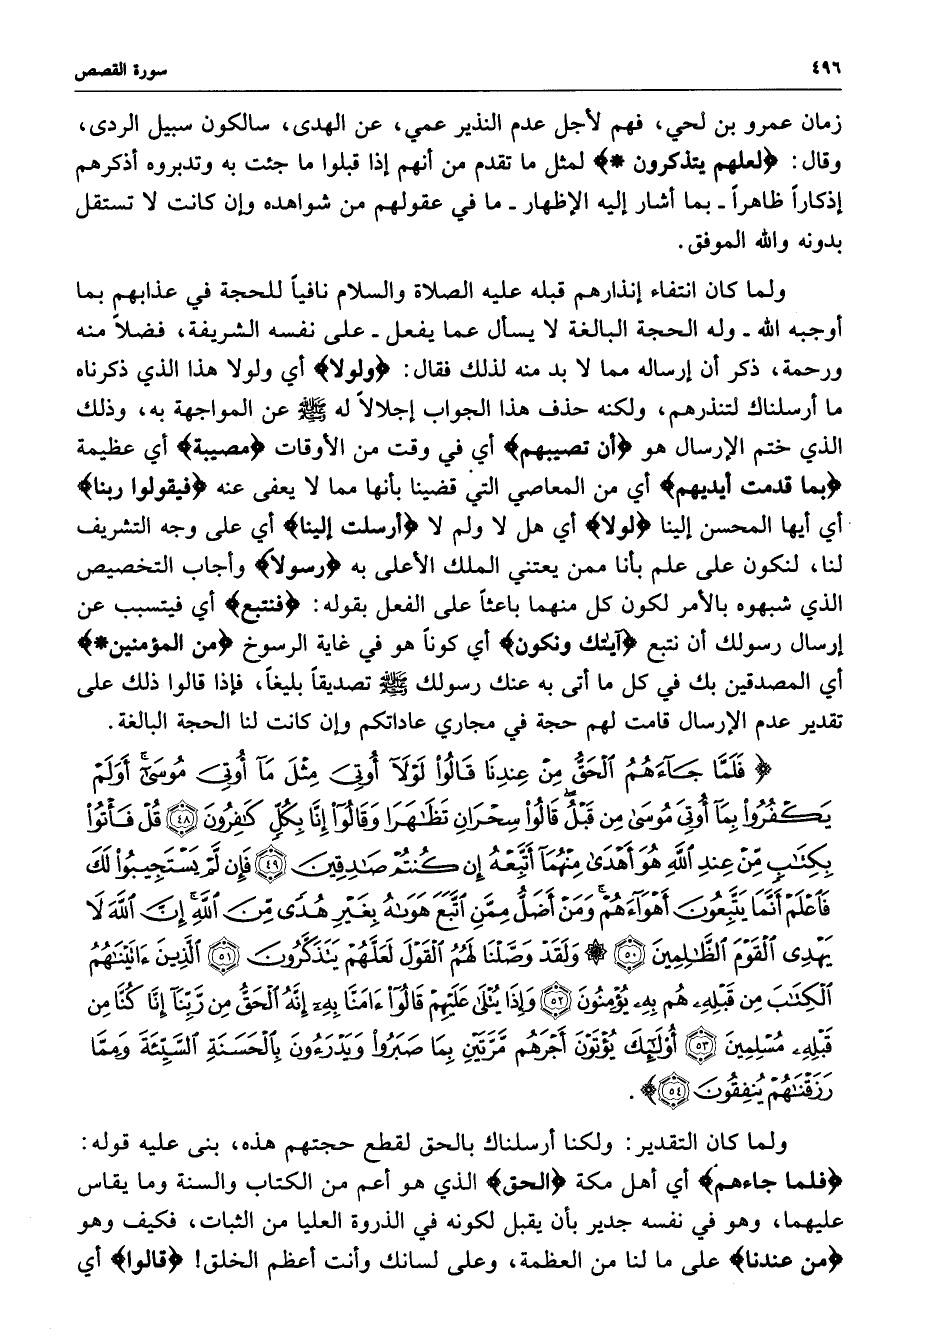 ٤٩٦ سورة القصص
زمان عمرو بن لحي، فهم لأجل عدم النذير عمي، عن الهدى، سالكون سبيل الردى،
وقال: ﴿لعلهم يتذكرون *﴾ لمثل ما تقدم من أنهم إذا قبلوا ما جئت به وتدبروه أذكرهم
إذكاراً ظاهراً ـ بما أشار إليه الإظهار ـ ما في عقولهم من شواهده وإن كانت لا تستقل
بدونه والله الموفق.
ولما كان انتفاء إنذارهم قبله عليه الصلاة والسلام نافياً للحجة في عذابهم بما
أوجبه الله ـ وله الحجة البالغة لا يسأل عما يفعل ـ على نفسه الشريفة، فضلاً منه
ورحمة، ذكر أن إرساله مما لا بد منه لذلك فقال: ﴿ولولا﴾ أي ولولا هذا الذي ذكرناه
ما أرسلناك لتنذرهم، ولكنه حذف هذا الجواب إجلالاً له ﷺ عن المواجهة به، وذلك
الذي ختم الإرسال هو ﴿أن تصيبهم﴾ أي في وقت من الأوقات ﴿مصيبة﴾ أي عظيمة
﴿بما قدمت أيديهم﴾ أي من المعاصي التي قضينا بأنها مما لا يعفى عنه ﴿فيقولوا ربنا﴾
أي أيها المحسن إلينا ﴿لولا﴾ أي هل لا ولم لا ﴿أرسلت إلينا﴾ أي على وجه التشريف
لنا، لنكون على علم بأنا ممن يعتني الملك الأعلى به ﴿رسولا﴾ وأجاب التخصيص
الذي شبهوه بالأمر لكون كل منهما باعثاً على الفعل بقوله: ﴿فنتبع﴾ أي فيتسبب عن
إرسال رسولك أن نتبع ﴿آيتك ونكون﴾ أي كوناً هو في غاية الرسوخ ﴿من المؤمنين*﴾
أي المصدقين بك في كل ما أتى به عنك رسولك ﷺ تصديقاً بليغاً، فإذا قالوا ذلك على
تقدير عدم الإرسال قامت لهم حجة في مجاري عاداتكم وإن كانت لنا الحجة البالغة.
﴿ فَلَمَّا جَآءَهُمُ ٱلْحَقُّ مِنْ عِندِنَا قَالُوا۟ لَوْلَآ أُوتِىَ مِثْلَ مَآ أُوتِىَ مُوسَىٰٓ ۚ أَوَلَمْ
يَكْفُرُوا۟ بِمَآ أُوتِىَ مُوسَىٰ مِن قَبْلُ ۖ قَالُوا۟ سِحْرَانِ تَظَٰهَرَا وَقَالُوٓا۟ إِنَّا بِكُلٍّ كَٰفِرُونَ ﴿٤٨﴾ قُلْ فَأْتُوا۟
بِكِتَٰبٍ مِّنْ عِندِ ٱللَّهِ هُوَ أَهْدَىٰ مِنْهُمَآ أَتَّبِعْهُ إِن كُنتُمْ صَٰدِقِينَ ﴿٤٩﴾ فَإِن لَّمْ يَسْتَجِيبُوا۟ لَكَ
فَٱعْلَمْ أَنَّمَا يَتَّبِعُونَ أَهْوَآءَهُمْ ۚ وَمَنْ أَضَلُّ مِمَّنِ ٱتَّبَعَ هَوَىٰهُ بِغَيْرِ هُدًى مِّنَ ٱللَّهِ ۚ إِنَّ ٱللَّهَ لَا
يَهْدِى ٱلْقَوْمَ ٱلظَّٰلِمِينَ ﴿٥٠﴾ ۞ وَلَقَدْ وَصَّلْنَا لَهُمُ ٱلْقَوْلَ لَعَلَّهُمْ يَتَذَكَّرُونَ ﴿٥١﴾ ٱلَّذِينَ ءَاتَيْنَٰهُمُ
ٱلْكِتَٰبَ مِن قَبْلِهِۦ هُم بِهِۦ يُؤْمِنُونَ ﴿٥٢﴾ وَإِذَا يُتْلَىٰ عَلَيْهِمْ قَالُوٓا۟ ءَامَنَّا بِهِۦٓ إِنَّهُ ٱلْحَقُّ مِن رَّبِّنَآ إِنَّا كُنَّا مِن
قَبْلِهِۦ مُسْلِمِينَ ﴿٥٣﴾ أُو۟لَٰٓئِكَ يُؤْتَوْنَ أَجْرَهُم مَّرَّتَيْنِ بِمَا صَبَرُوا۟ وَيَدْرَءُونَ بِٱلْحَسَنَةِ ٱلسَّيِّئَةَ وَمِمَّا
رَزَقْنَٰهُمْ يُنفِقُونَ ﴿٥٤﴾ ﴾.
ولما كان التقدير: ولكنا أرسلناك بالحق لقطع حجتهم هذه، بنى عليه قوله:
﴿فلما جاءهم﴾ أي أهل مكة ﴿الحق﴾ الذي هو أعم من الكتاب والسنة وما يقاس
عليهما، وهو في نفسه جدير بأن يقبل لكونه في الذروة العليا من الثبات، فكيف وهو
﴿من عندنا﴾ على ما لنا من العظمة، وعلى لسانك وأنت أعظم الخلق! ﴿قالوا﴾ أي